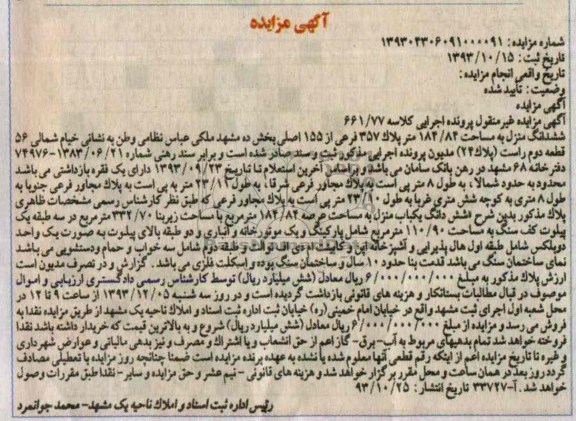 آگهی مزایده
شماره مزایده: ۱۳۹۳۰۴۳۰۶۰۹۱۰۰۰۰۹۱
تاریخ ثبت: ۱۳۹۳/۱۰/۱۵
تاریخ واقعی انجام مزایده:
وضعیت: تأیید شده
آگهی مزایده
آگهی مزایده غیرمنقول پرونده اجرایی کلاسه ۶۶۱/۷۷
ششدانگ منزل به مساحت ۱۸۴/۸۴ متر پلاک ۳۵۷ فرعی از ۱۵۵ اصلی بخش ده مشهد ملکی عباس نظامی وطن به نشانی خیام شمالی ۵۶
قطعه دوم راست (پلاک۲۴) مدیون پرونده اجرایی مذکور ثبت و سند صادر شده است و برابر سند رهنی شماره ۱۳۸۳/۰۶/۲۱-۷۴۹۷۶
دفترخانه ۶۸ مشهد در رهن بانک سامان می باشد و براساس آخرین استعلام تا تاریخ ۱۳۹۳/۰۹/۲۳ دارای یک فقره بازداشتی می باشد
محدود به حدود شمالا، به طول ۸ متر پی است به پلاک مجاور فرعی شرقا، به طول ۲۳/۱۱ متر به پی است به پلاک مجاور فرعی جنوبا به
طول ۸ متری به کوچه شش متری غربا به طول ۲۳/۱۰ متر پی است به پلاک مجاور فرعی که طبق نظر کارشناس رسمی مشخصات ظاهری
پلاک مذکور بدین شرح: ششدانگ یکباب منزل به مساحت عرصه ۱۸۴/۸۴ مترمربع با مساحت زیربنا ۳۳۲/۷۰ مترمربع در سه طبقه یک
پیلوت کف سنگ به مساحت ۱۱۰/۹۰ مترمربع شامل پارکینگ و یک موتورخانه و انباری و دو طبقه بالای پیلوت به صورت یک واحد
دوبلکس شامل طبقه اول هال پذیرایی و آشپزخانه اپن و کابینت ام دی اف توالت و طبقه دوم شامل سه خواب و حمام ودستشویی می باشد
نمای ساختمان سنگ می باشد قدمت بنا حدود ۱۰ سال و ساختمان سنگ بوده و اسکلت فلزی می باشد. گزارش و در تصرف مدیون است
ارزش پلاک مذکور به مبلغ ۶/۰۰۰/۰۰۰/۰۰۰ ریال معادل (شش میلیارد ریال) توسط کارشناس رسمی دادگستری ارزیابی و اموال
موصوف در قبال مطالبات بستانکار و هزینه های قانونی بازداشت گردیده است و در روز سه شنبه ۱۳۹۳/۱۲/۰۵ از ساعت ۹ تا ۱۲ در
محل شعبه اول اجرای ثبت مشهد واقع در خیابان امام خمینی (ره) خیابان ثبت اداره ثبت اسناد و املاک ناحیه یک مشهد از طریق مزایده نقدا به
فروش می رسد و مزایده از مبلغ ۶/۰۰۰/۰۰۰/۰۰۰ ریال معادل (شش میلیارد ریال) شروع و به بالاترین قیمت که خریدار داشته باشد نقدا
فروخته خواهد شد تمام بدهیهای مربوط به آب- برق- گاز اعم از حق انشعاب و یا اشتراک و مصرف و نیز بدهی مالیاتی و عوارض شهرداری
و غیره تا تاریخ مزایده اعم از اینکه رقم قطعی آنها معلوم شده یا نشده به عهده برنده مزایده است ضمنا چنانچه روز مزایده با تعطیلی مصادف
گردد روز بعد در همان ساعت و محل مقرر برگزار خواهد شد و هزینه های قانونی - نیم عشر و حق مزایده و سایر- نقدا طبق مقررات وصول
خواهد شد. آ-۳۳۷۲۷ تاریخ انتشار: ۹۳/۱۰/۲۵
رئیس اداره ثبت اسناد و املاک ناحیه یک مشهد- محمد جوانمرد